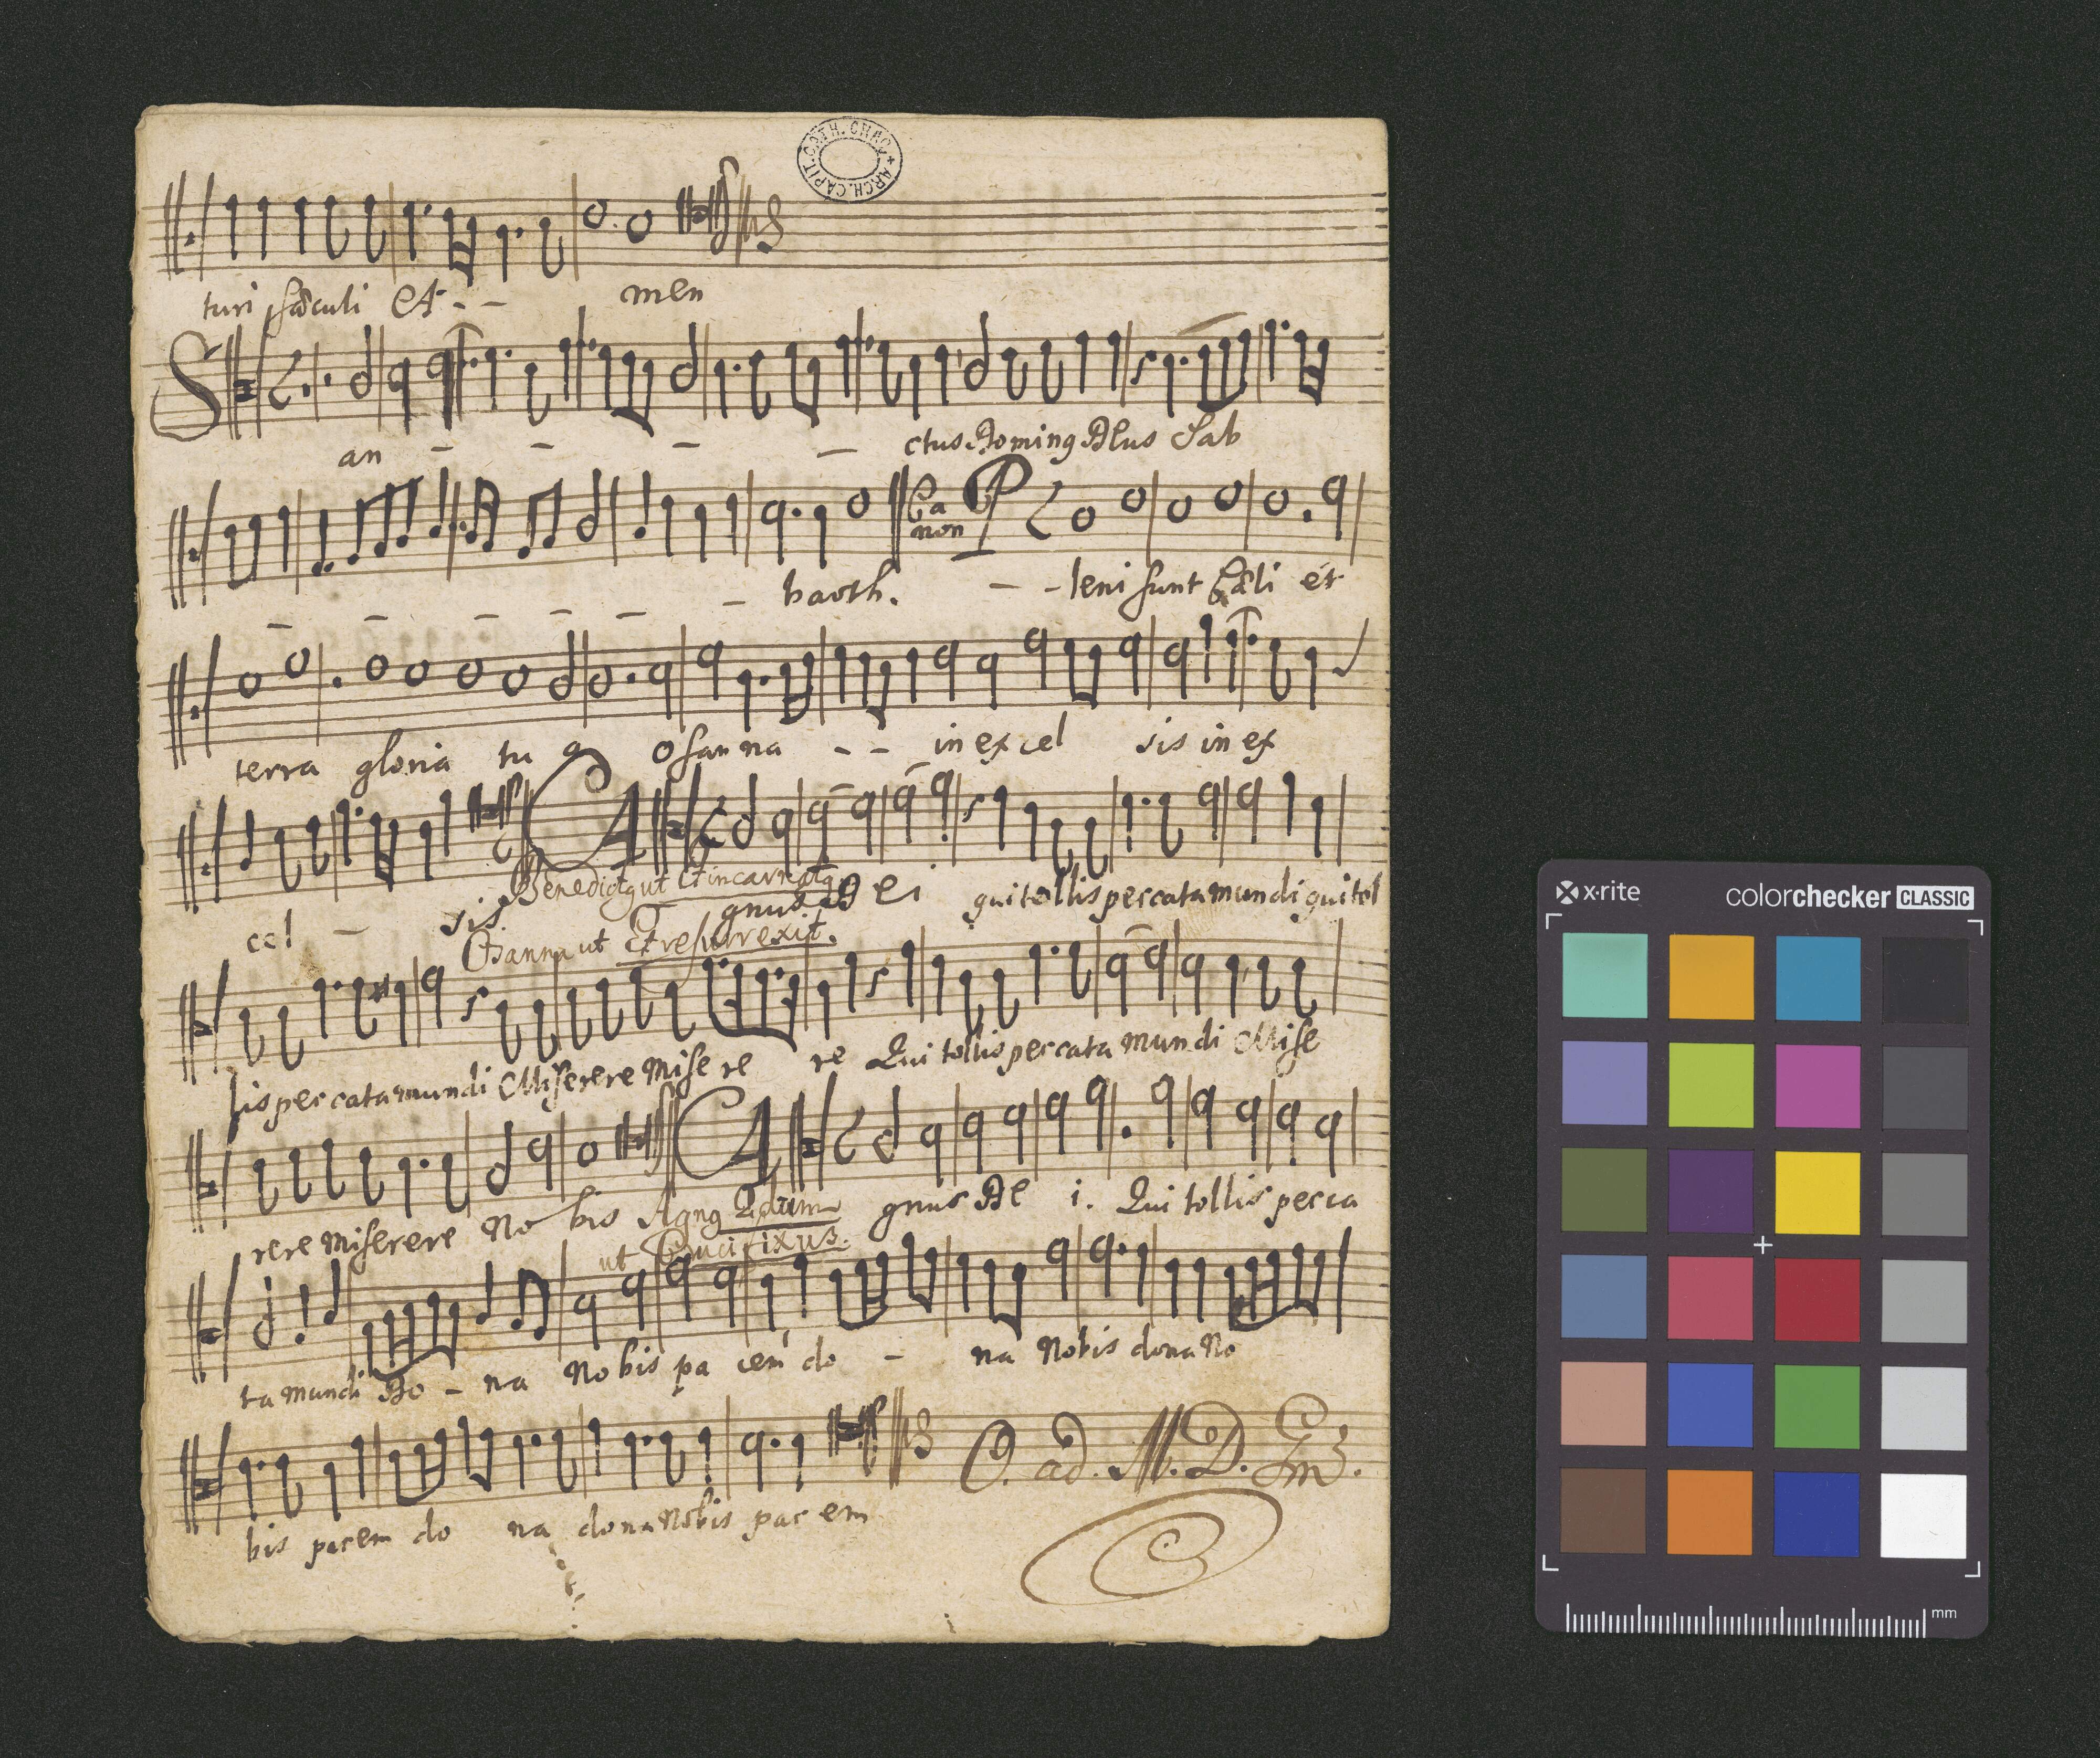 ARCH. CAPIT. CATH. CRAC.
turi sæculi A - - men
San - - - - ctus Doming Deus Sab
- - - - - - baoth. Canon P - - leni sunt Cæli et
terra gloria tu a Osanna - - in excel sis in ex
cel - sis Agnus Dei qui tollis peccata mundi qui tol
Benedictg ut Et incarnatg
Osanna ut Et resurrexit.
lis peccata mundi Miserere Mise re re Qui tollis peccata mundi Mise
rere miserere No bis Agnus De i. Qui tollis pecca
Agng 2dum
ut Crucifixus.
ta mundi Do - na Nobis pa cem do - na Nobis dona No
bis pacem do na dona Nobis pacem
O. ad. M. D. G.
x-rite colorchecker CLASSIC
mm